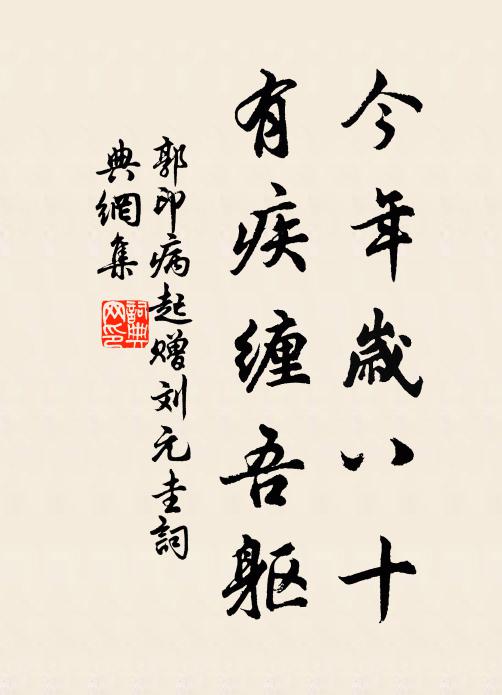 今年歲八十
有疾缠吾躯
郭印病起赠刘元圭詞
典網集
詞典網印